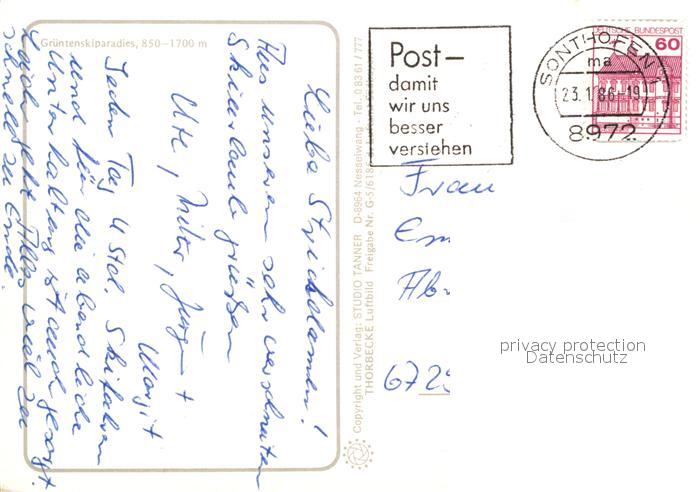 Grüntenskiparadies, 850–1700 m
Liebe Strickdamen!
Aus unserem sehr verschneiten
Skiurlaub grüßen
Ute, Jürgen +
Margit
Jeden Tag 4 Std. Skifahren
und für die abendliche
Unterhaltung ist auch gesorgt.
Leider geht alles viel zu
schnell zu Ende.
Copyright und Verlag: STUDIO TANNER D-8964 Nesselwang · Tel. 0 83 61 / 777
THORBECKE Luftbild Freigabe Nr. G-5/618
Post–
damit
wir uns
besser
verstehen
SONTHOFEN 1
ma
23.1.86-19
8972
DEUTSCHE BUNDESPOST
60
Frau
Em
Ab
672
privacy protection
Datenschutz